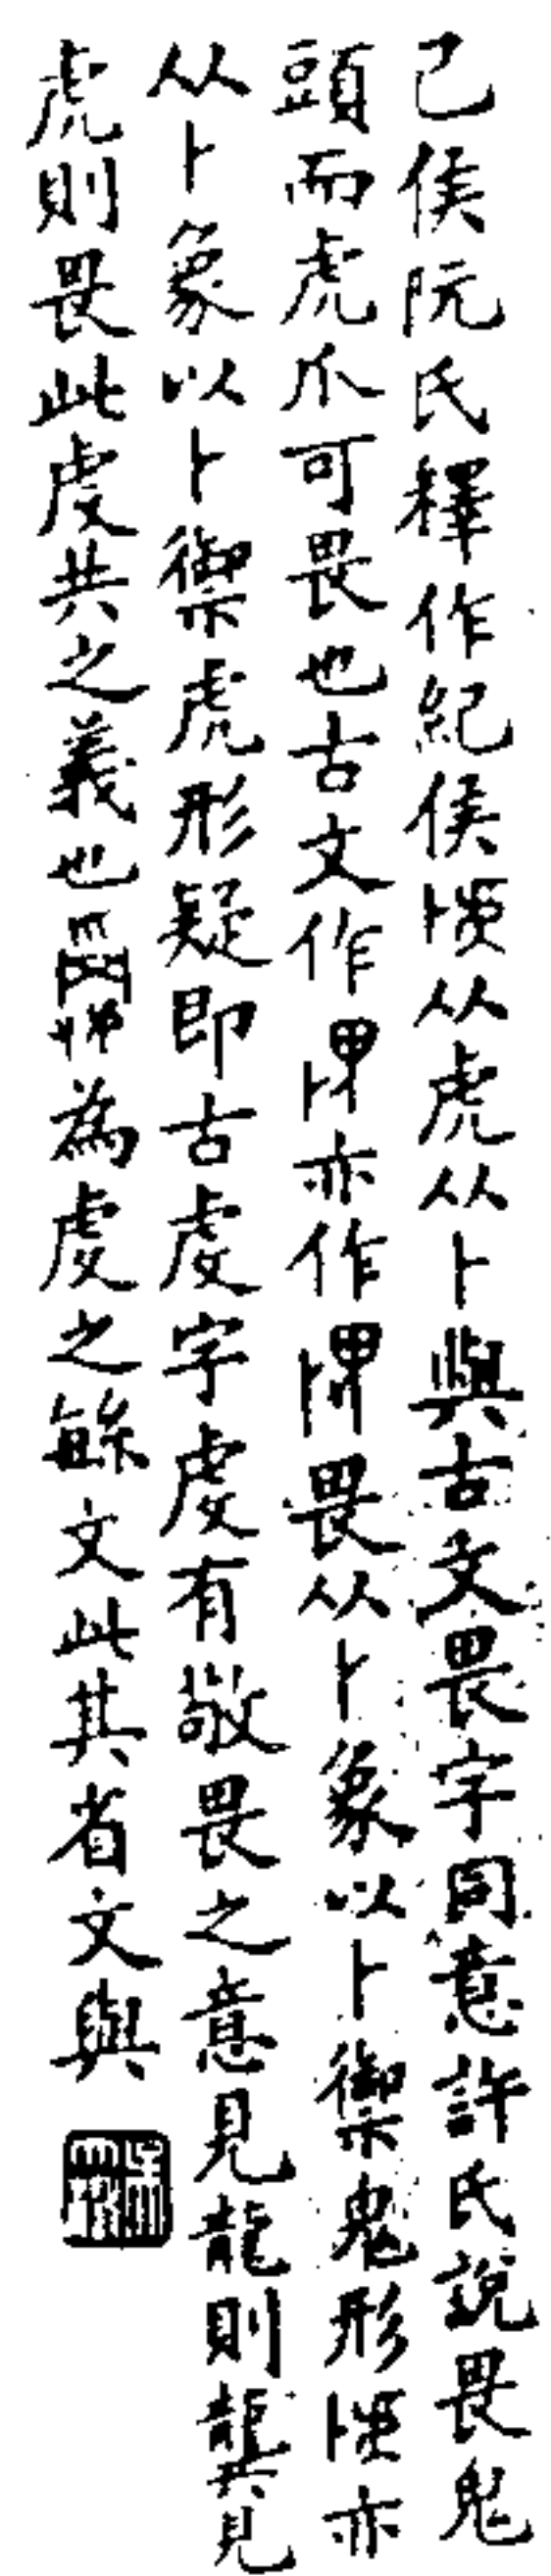 己侯阮氏釋作紀侯从虎从卜與古文畏字同意許氏說畏鬼
頭而虎爪可畏也古文作亦作畏从卜象以卜禦鬼形亦
从卜象以卜禦虎形疑即古虔字虔有敬畏之意見龍則龔見
虎則畏此虔共之義也為虔之緐文此其省文與